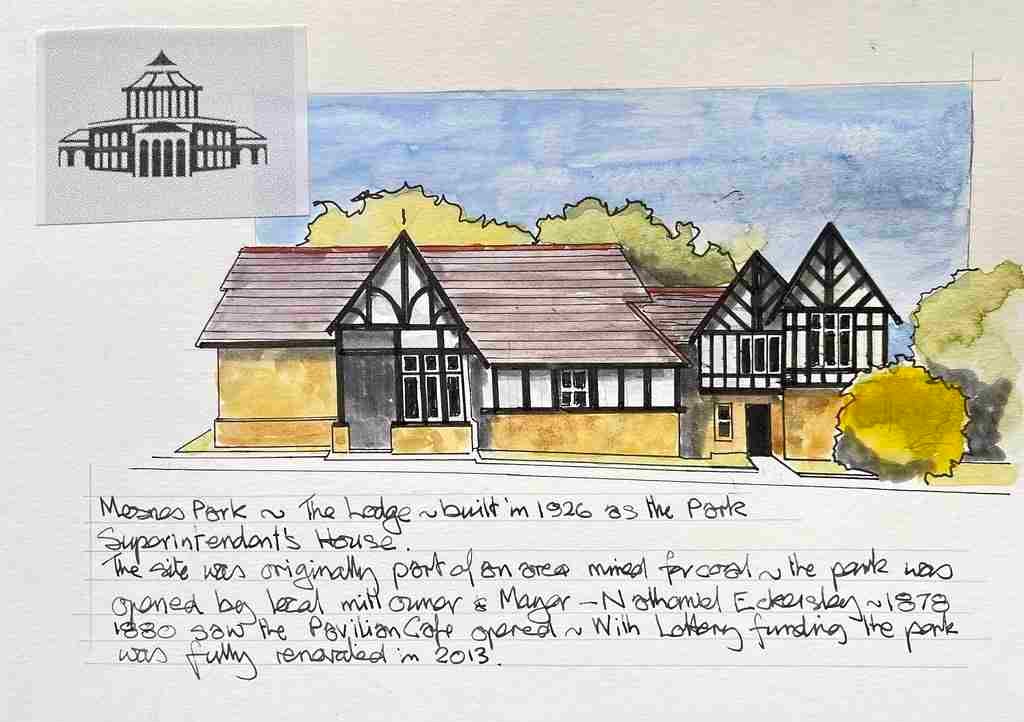 Mesnes Park ~ The Lodge ~ built in 1926 as the Park
Superintendant's House.
The site was originally part of an area mined for coal ~ the park was
opened by local mill owner & Mayor - Nathaniel Eckersley ~ 1878
1880 saw the Pavilian Cafe opened ~ With Lottery funding the park
was fully renovated in 2013.